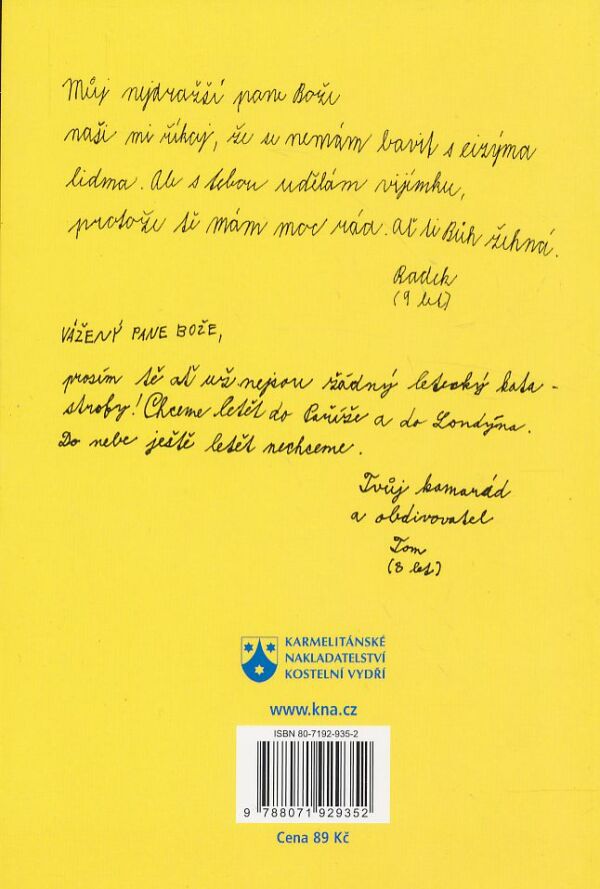 Můj nejdražší pane Bože
naši mi říkaj, že se nemám bavit s cizýma
lidma. Ale s tebou udělám vijímku,
protože tě mám moc rád. Ať ti Bůh žehná.
Radek
(9 let)
VÁŽENÝ PANE BOŽE,
prosím tě ať už nejsou žádný letecký kata-
strofy! Chceme letět do Paříže a do Londýna.
Do nebe ještě letět nechceme.
Tvůj kamarád
a obdivovatel
Tom
(8 let)
KARMELITÁNSKÉ
NAKLADATELSTVÍ
KOSTELNÍ VYDŘÍ
www.kna.cz
ISBN 80-7192-935-2
9 788071 929352
Cena 89 Kč